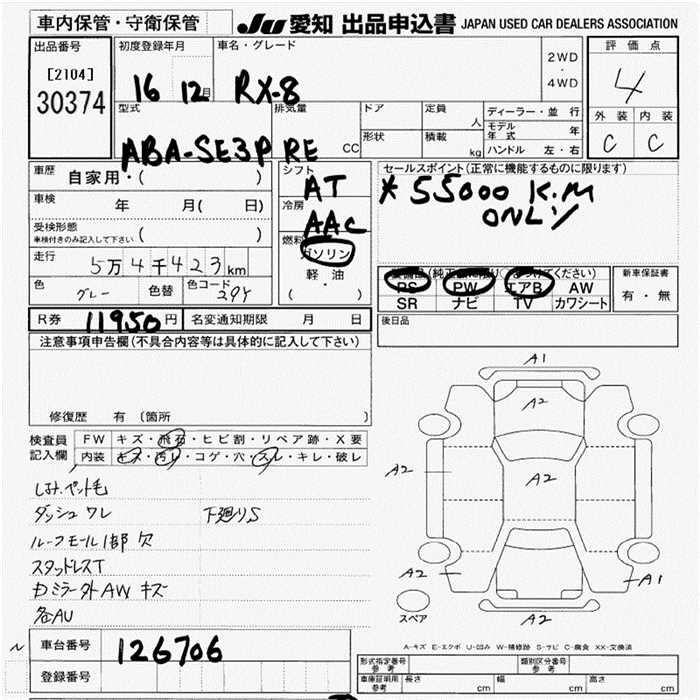 車内保管・守衛保管
JU 愛知 出品申込書 JAPAN USED CAR DEALERS ASSOCIATION
出品番号
[2104]
30374
初度登録年月
16 12月
車名・グレード
RX-8
2WD
・
4WD
評価点
4
外装 内装
C C
型式
ABA-SE3P RE
排気量
CC
ドア
形状
定員
人
積載
kg
ディーラー・並行
モデル年式 年
ハンドル 左・右
車歴 自家用・( )
車検 年 月( 日)
受検形態 ( )
車検付きのみ記入して下さい
走行 5万4千423km
色 グレー 色替 色コード
R券 11950円 名変通知期限 月 日
シフト
AT
冷房
AAC
燃料
ガソリン
軽・油
( ・ )
セールスポイント(正常に機能するものに限ります)
* 55000 K.M
ONLY
装備品(純正品に限り○をつけてください)
PS PW エアB AW
SR ナビ TV カワシート
新車保証書
有・無
後日品
注意事項申告欄(不具合内容等は具体的に記入して下さい)
修復歴 有 〔箇所 〕
検査員記入欄
FW キズ・飛石・ヒビ割・リペア跡・X要
内装 キズ・汚レ・コゲ・穴・スレ・キレ・破レ
しみ、ペット毛
ダッシュ ワレ 下廻りS
ルーフモール1部欠
スタッドレスT
カミラー外AW キズ
各AU
A1
A2
A2
A2
A2
A2
A1
A2
スペア
A-キズ E-エクボ U-凹み W-補修跡 S-サビ C-腐食 XX-交換済
N
車台番号 126706
登録番号
形式指定番号 参考
類別区分番号 参考
車庫証明用 参考 長さ cm 幅 cm 高さ cm